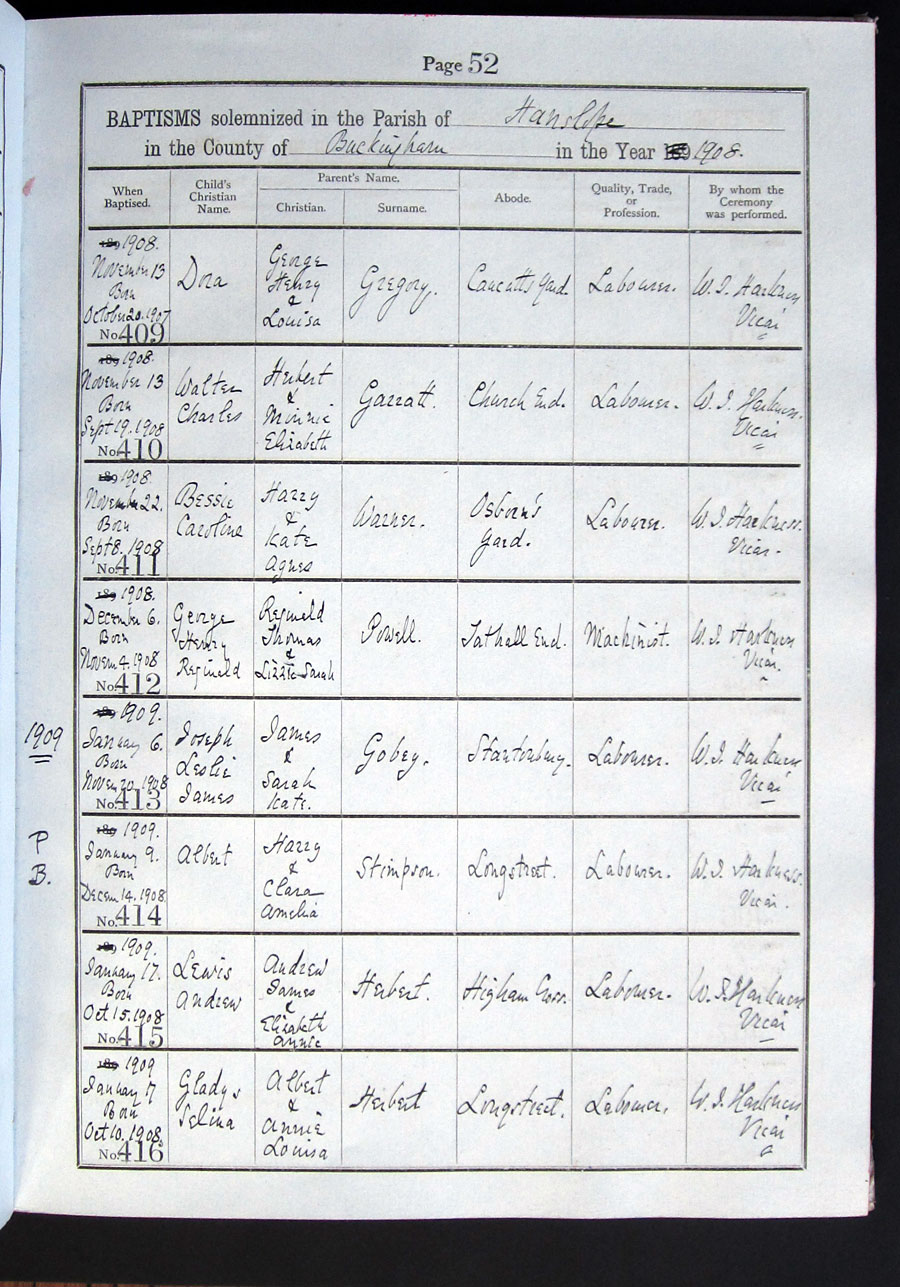 Page 52
BAPTISMS solemnized in the Parish of Hanslope
in the County of Buckingham in the Year 189 1908.
When Baptised. Child's Christian Name. Parent's Name. Christian. Surname. Abode. Quality, Trade, or Profession. By whom the Ceremony was performed.
189 1908.
November 13
Born
October 20. 1907
No. 409
Dora
George
Henry
&
Louisa
Gregory.
Yard.
Labourer.
W. J. Harkness
Vicar
189 1908.
November 13
Born
Sept 19. 1908
No. 410
Walter
Charles
Herbert
&
Minnie
Elizabeth
Garratt.
Church End.
Labourer.
W. J. Harkness.
Vicar
189 1908.
November 22.
Born
Sept 8. 1908
No. 411
Bessie
Caroline
Harry
&
Kate
Agnes
Warner.
Osborn's
Yard.
Labourer.
W. J. Harkness.
Vicar.
189 1908.
December 6.
Born
Novem 4. 1908
No. 412
George
Henry
Reginald
Reginald
Thomas
&
Lizzie Sarah
Powell.
Tathall End.
Machinist.
W. J. Harkness
Vicar.
1909
189 1909.
January 6.
Born
Novem 20. 1908
No. 413
Joseph
Leslie
James
James
&
Sarah
Kate.
Gobey.
Stantonbury.
Labourer.
W. J. Harkness
Vicar
P
B.
189 1909.
January 9.
Born
Decem 14. 1908
No. 414
Albert
Harry
&
Clara
Amelia
Stimpson.
Longstreet.
Labourer.
W. J. Harkness.
Vicar.
189 1909.
January 17.
Born
Oct 15. 1908
No. 415
Lewis
Andrew
Andrew
James
&
Elizabeth
Annie
Herbert.
Higham Cross.
Labourer.
W. J. Harkness
Vicar
189 1909
January 17
Born
Oct 10. 1908.
No. 416
Gladys
Selina
Albert
&
Annie
Louisa
Herbert
Longstreet.
Labourer.
W. J. Harkness
Vicar